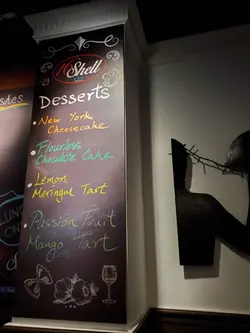 Shell
Desserts
New York
Cheesecake
Flourless
Chocolate Cake
Lemon
Meringue Tart
Passion Fruit
Mango Tart
shes
LUN
ON